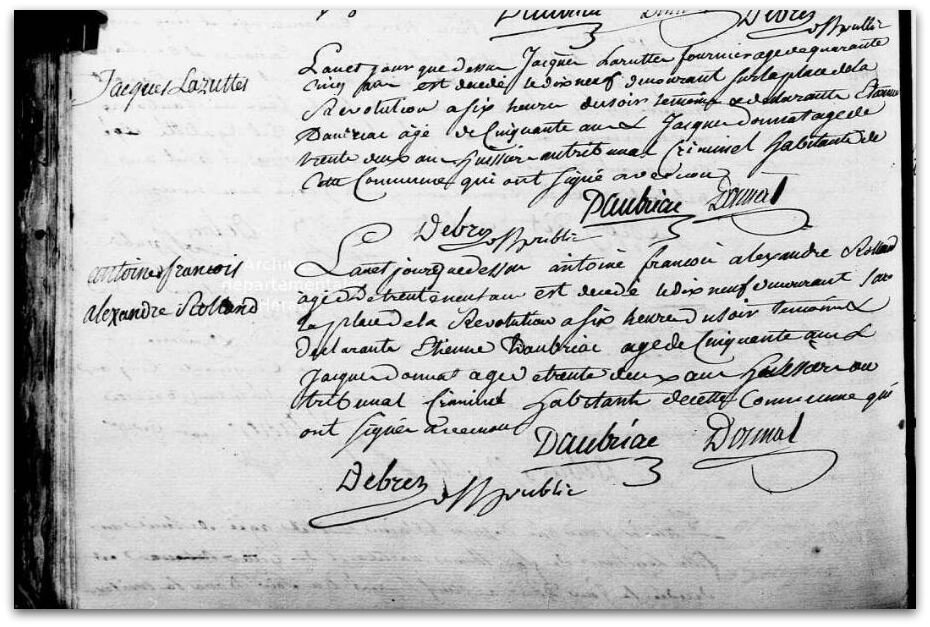 Daubriac Donnat Debrez
off. public
Jacques Lazuttes
L'an et jour que dessus Jacques Lazuttes fournier age de quarante
cinq ans est decedé le dix neuf du courant sur la place de la
Revolution a six heures du soir temoins et declarants Etienne
Daubriac âgé de Cinquante ans & Jacques donnat age de
trente deux ans huissiers au tribunal Criminel habitants de
cette Commune qui ont signé avec nous
Daubriac Donnat
Debrez off. public
antoine françois
alexandre Rolland
L'an et jour que dessus antoine françois alexandre Rolland
age de trente neuf ans est decedé le dix neuf du courant sur
la place de la Revolution a six heures du soir temoins &
declarants Etienne Daubriac age de Cinquante ans &
Jacques donnat age de trente deux ans huissiers au
tribunal Criminel habitants de cette Commune qui
ont signer avec nous
Daubriac Donnat
Debrez off. public
Archives
départementales
Hérault